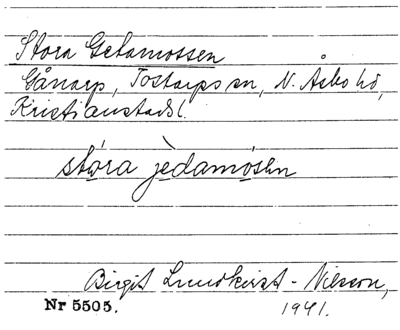 Stora Getamossen
Gånarp, Tostarps sn, N. Åsbo hd,
Kristianstads l.
stóra jèdamósen
Birgit Lundkvist - Nilsson,
Nr 5505.
1941.